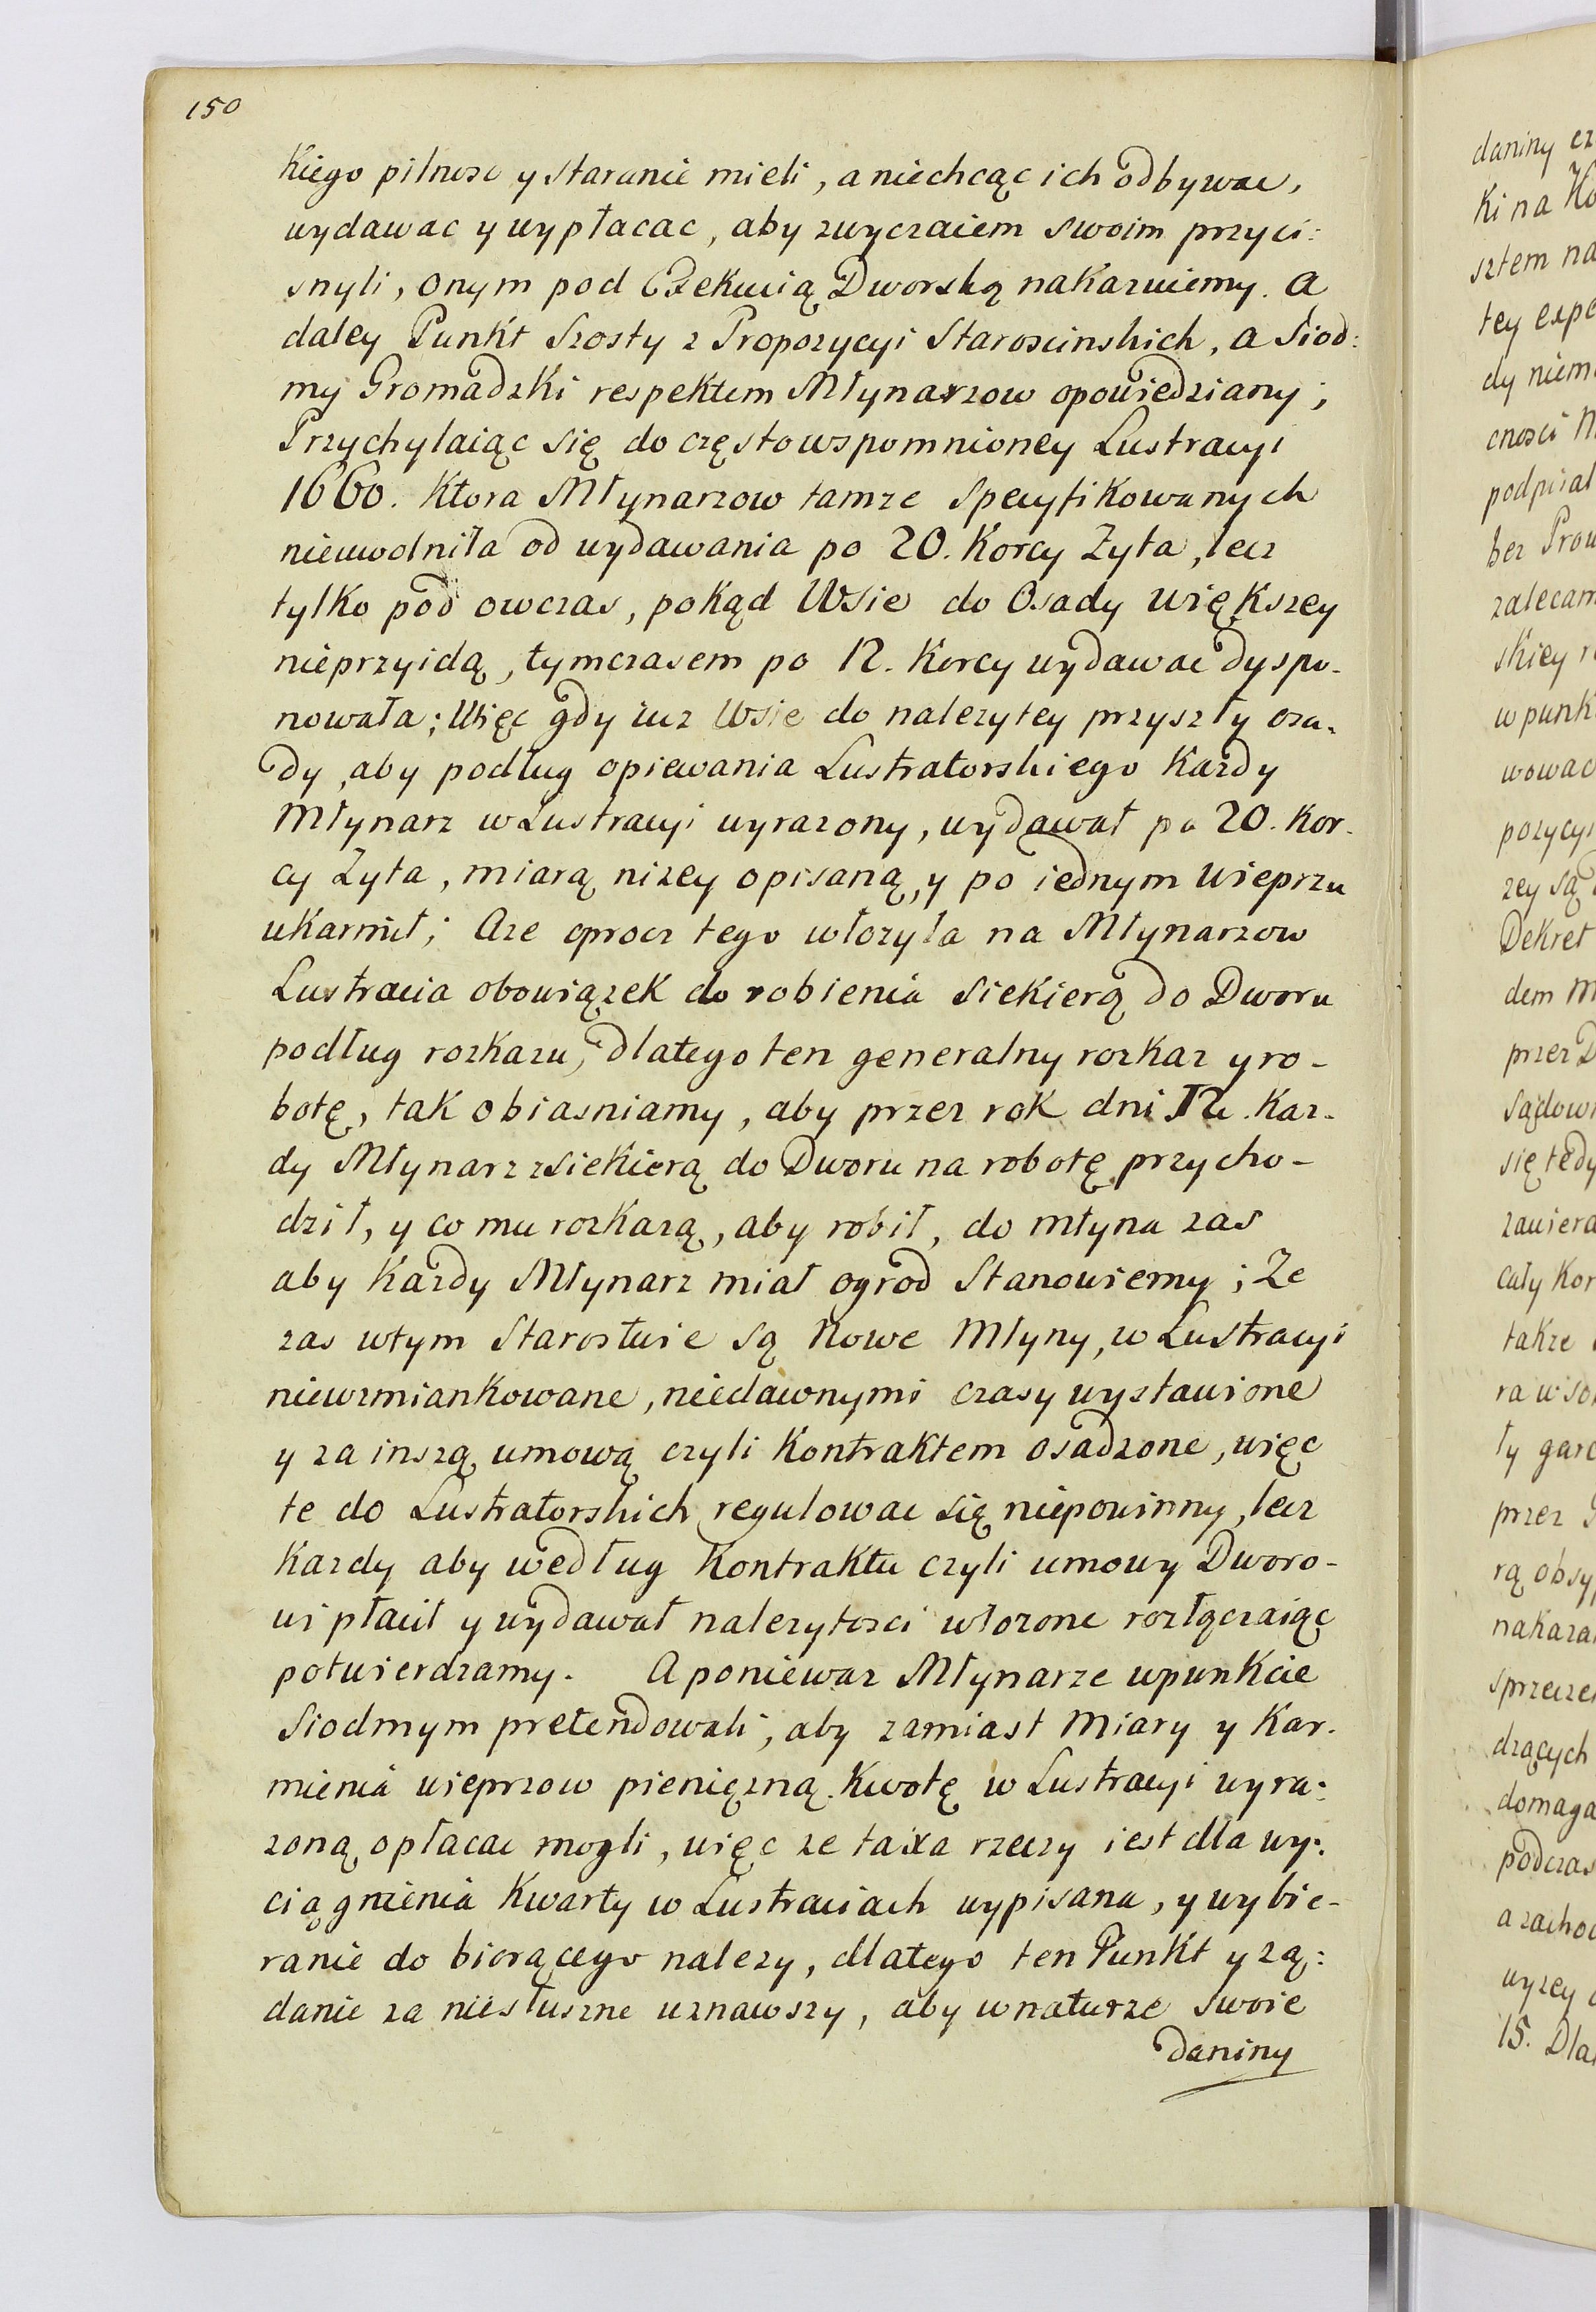 150
kiego pilnosc y staranie mieli, a niechcąc ich odbywac,
wydawac y wypłacac, aby zwyczaiem swoim przyci:
snyli, onym pod Exekucią Dworską nakazuiemy. A
daley Punkt Szosty z Propozycyi Staroscinskich, a Siod:
my Gromadzki respektem Młynarzow opowiedziany;
Przychylaiąc się do często wspomnioney Lustracyi
1660. Ktora Młynarzow tamze specyfikowanych
nieuwolniła od wydawania po 20. Korcy Zyta, lecz
tylko pod owczas, pokąd Wsie do Osady większey
nieprzyidą, tymczasem po 12. Korcy wydawac dyspo-
nowała; Więc gdy iuz Wsie do nalezytey przyszły osa-
dy, aby podług opiewania Lustratorskiego Kazdy
Młynarz w Lustracyi wyrazony, wydawał po 20. Kor-
cy Zyta, miarą nizey opisaną, y po iednym Wieprzu
ukarmił; Aze oprocz tego włozyła na Młynarzow
Lustracia obowiązek do robienia siekierą do Dworu
podług rozkazu, dlatego ten generalny rozkaz y ro-
botę, tak obiasniamy, aby przez rok dni 12. Kaz-
dy Młynarz z siekierą do Dworu na robotę przycho-
dził, y co mu rozkazą, aby robił, do młyna zas
aby Kazdy Młynarz miał ogrod Stanowiemy; Ze
zas wtym Starostwie są Nowe Młyny, w Lustracyi
niewzmiankowane, niedawnymi czasy wystawione
y za inszą umową czyli Kontraktem osadzone, więc
te do Lustratorskich regulowac się niepowinny, lecz
Kazdy aby według Kontraktu czyli umowy Dworo-
wi płacił y wydawał nalezytosci włozone rozłączaiąc
potwierdzamy. A poniewaz Młynarze w punkcie
Siodmym pretendowali, aby zamiast Miary y Kar-
mienia wieprzow pienięzną Kwotę w Lustracyi wyra:
zoną opłacac mogli, więc ze taxa rzeczy iest dla wy:
ciągnienia Kwarty w Lustraciach wypisana, y wybie-
ranie do biorącego nalezy, dlatego ten Punkt y zą:
danie za niesłuszne uznawszy, aby w naturze swoie
daniny